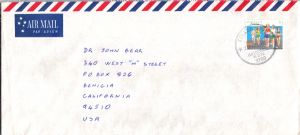 AIR MAIL
PAR AVION
DR. JOHN BERR
340 WEST "M" STREET
PO BOX 826
BENICIA
CALIFORNIA
94510
USA